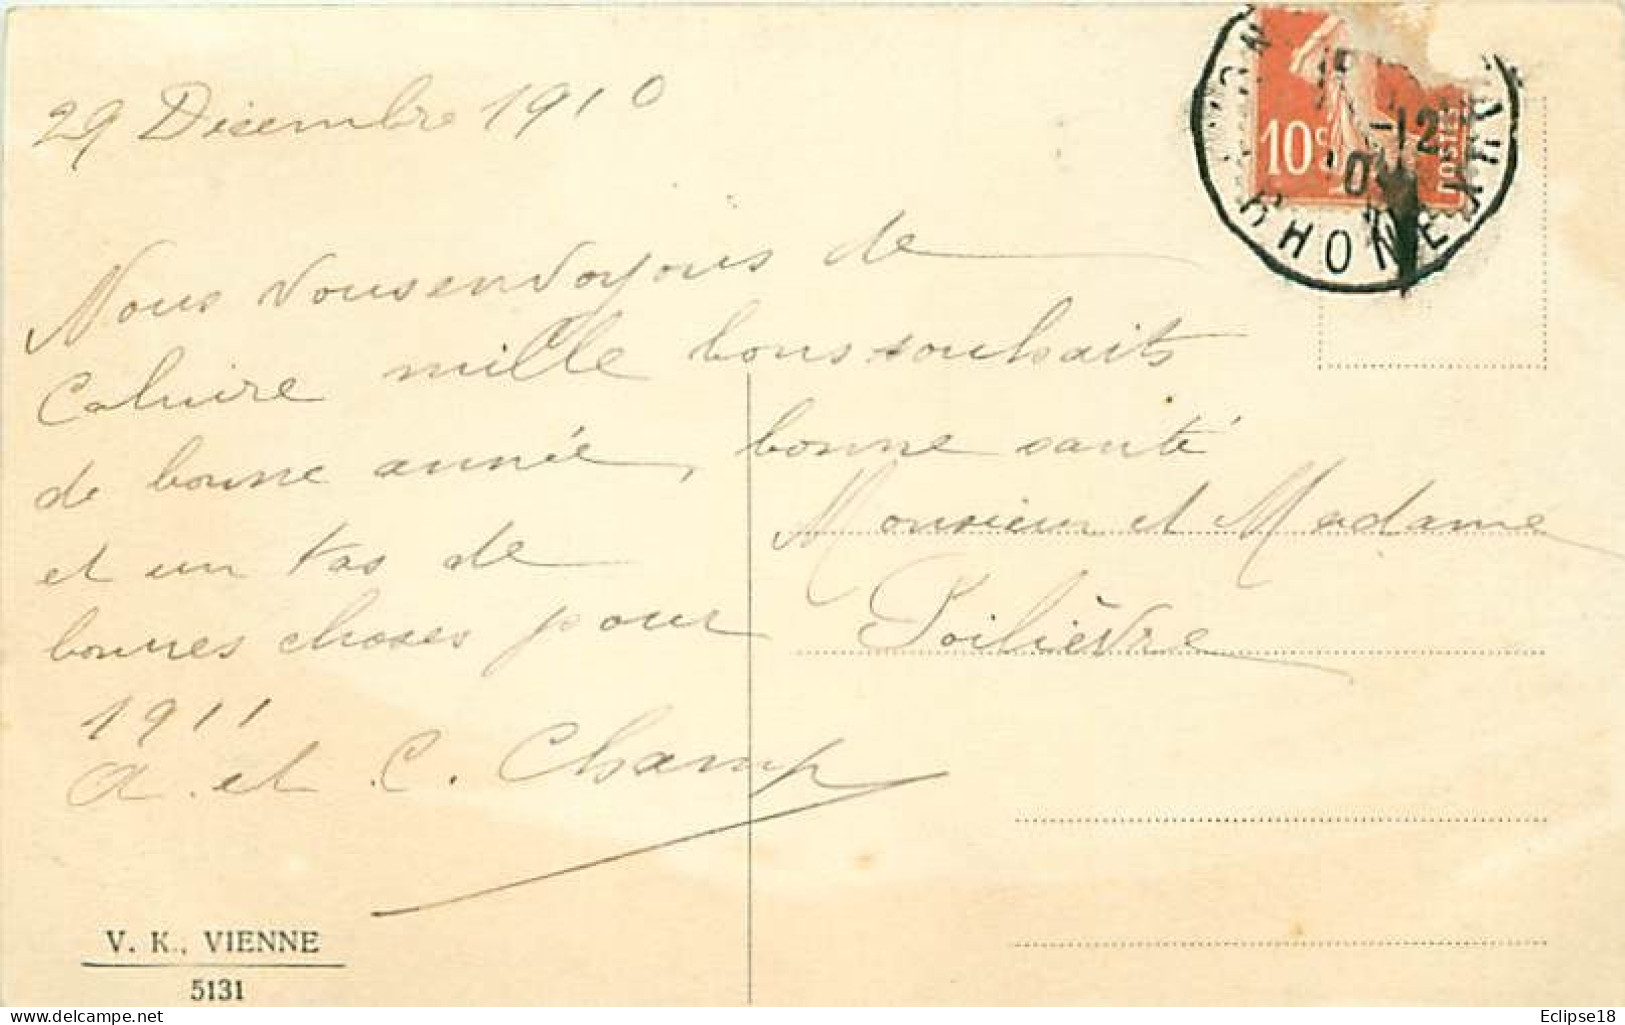 29 Décembre 1910
Nous vous envoyons de
Caluire mille bons souhaits
de bonne année, bonne santé
et un tas de
bonnes choses pour
1911
A. et C. Champ
Monsieur et Madame
Poilièvre
10c
POSTES
-12
RHONE
V. K., VIENNE
5131
delcampe.net
Eclipse18